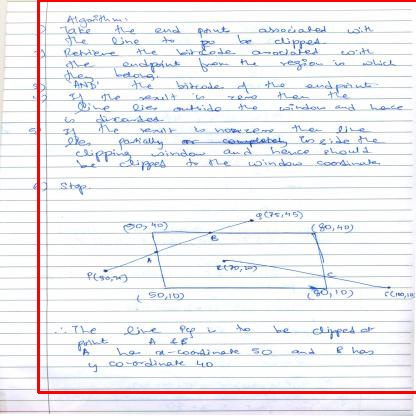 Algorithm:
1) Take the end point associated with
the line to be clipped
2) Retrieve the bitcode associated with
the endpoint from the region in which
they belong.
3) 'AND' the bitcode of the endpoint
4. If the result is zero then the
line lies outside the window and hence
is discarded
5. If the result is nonzero then line
lies partially or completely inside the
clipping window and hence should
be clipped to the window coordinate
6) Stop.
Q(75,45)
(50,40) B (80,40)
A R(70,20)
C
(50,10) (80,10)
∴ The line PQ is to be clipped at
point A & B
A has x-coordinate 50 and B has
y co-ordinate 40